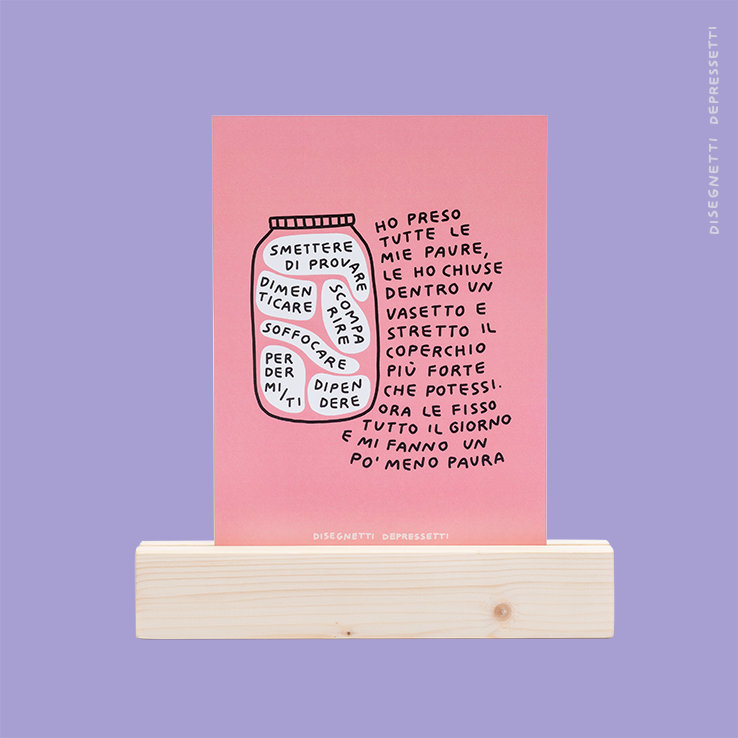 DISEGNETTI DEPRESSETTI
SMETTERE
DI PROVARE
DIMEN
TICARE
SCOMPA
RIRE
SOFFOCARE
PER
DER
MI/TI
DIPEN
DERE
HO PRESO
TUTTE LE
MIE PAURE,
LE HO CHIUSE
DENTRO UN
VASETTO E
STRETTO IL
COPERCHIO
PIÙ FORTE
CHE POTESSI.
ORA LE FISSO
TUTTO IL GIORNO
E MI FANNO UN
PO' MENO PAURA
DISEGNETTI DEPRESSETTI